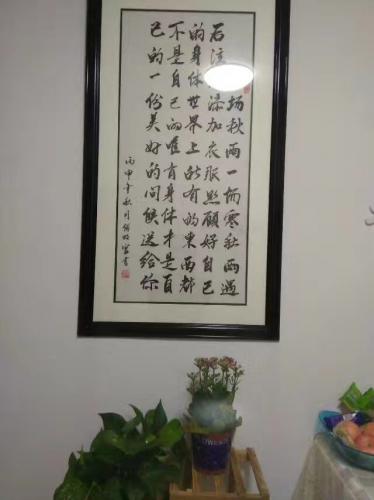 场秋雨一场寒秋雨过
后注添加衣服照顾好自己
的身体世界上所有的东西都
不是自己的唯有身体才是自
己的一份美好的问候送给你
丙申年秋月书